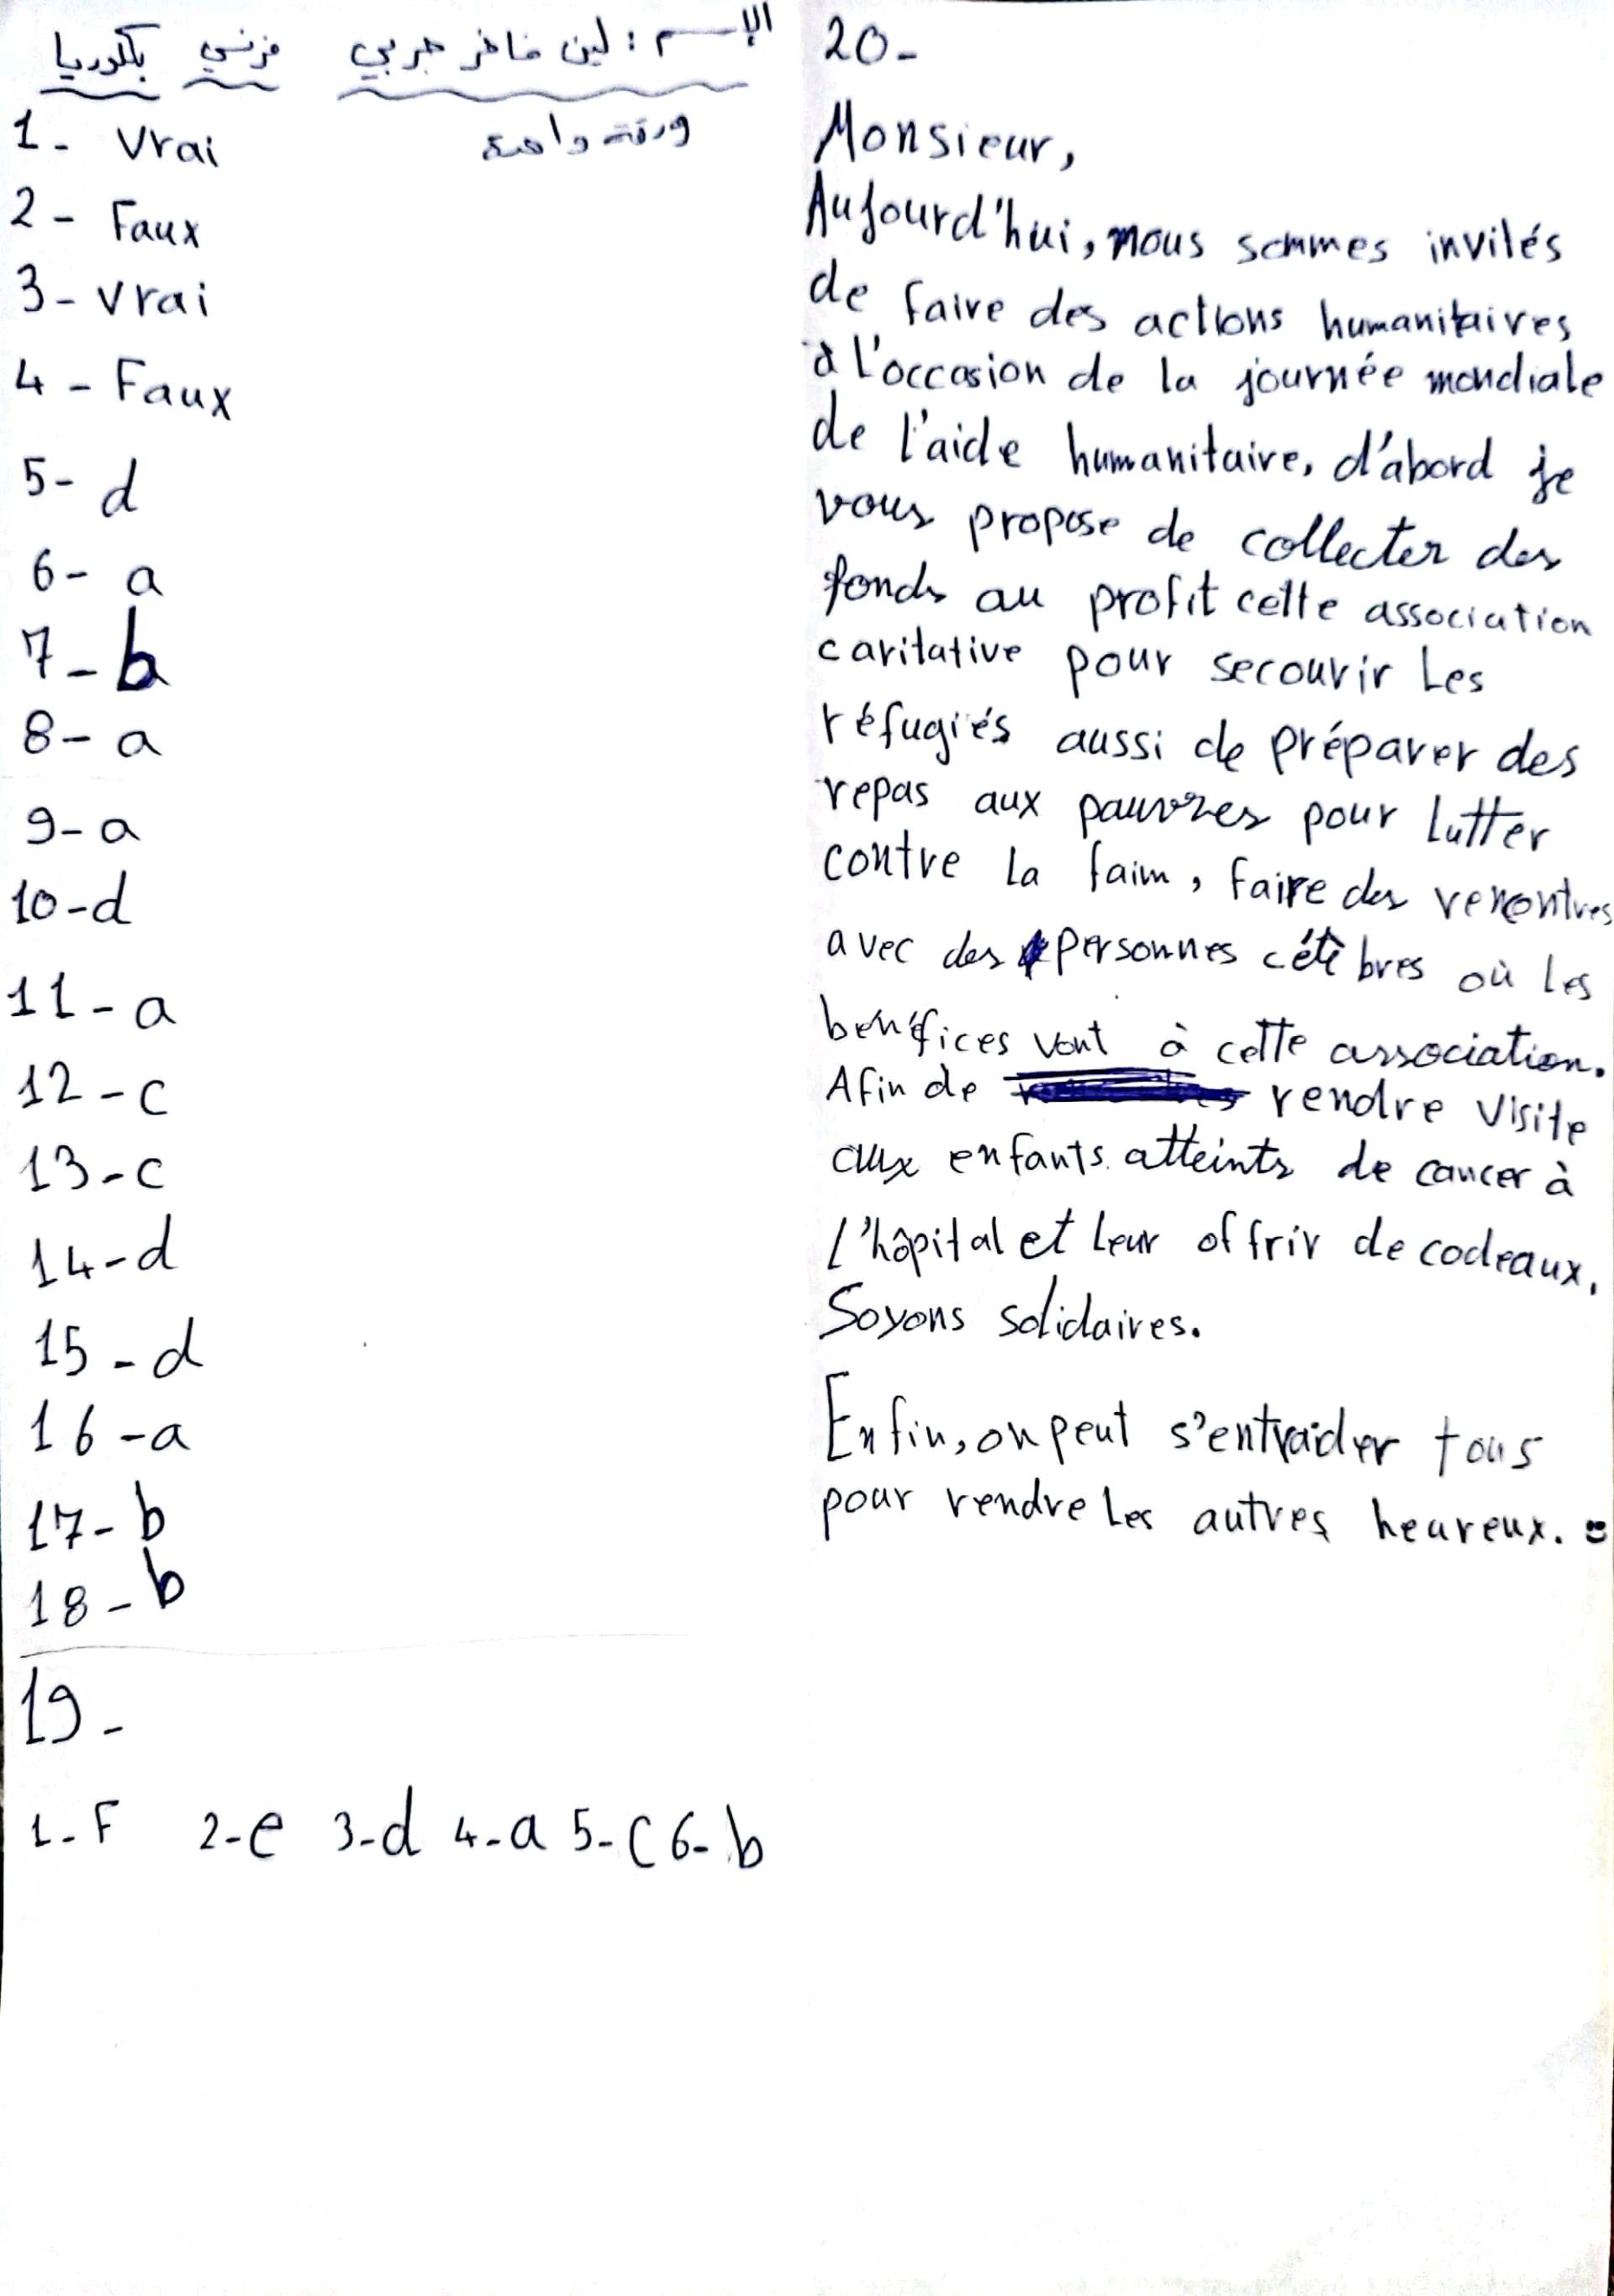 الإسم : لين فاخر جربي فرنسي بكلوريا
ورقة واحدة
1- Vrai
2- Faux
3- Vrai
4- Faux
5- d
6- a
7- b
8- a
9- a
10- d
11- a
12- c
13- c
14- d
15- d
16- a
17- b
18- b
19-
1-F 2-e 3-d 4-a 5-c 6-b
20-
Monsieur,
Aujourd'hui, nous sommes invités
de faire des actions humanitaires
à l'occasion de la journée mondiale
de l'aide humanitaire, d'abord je
vous propose de collecter des
fonds au profit cette association
caritative pour secourir les
réfugiés aussi de préparer des
repas aux pauvres pour lutter
contre la faim, faire des renontres
avec des personnes célèbres où les
bénéfices vont à cette association.
Afin de rendre visite
aux enfants atteints de cancer à
l'hôpital et leur offrir de cadeaux.
Soyons solidaires.
Enfin, on peut s'entraider tous
pour rendre les autres heureux.